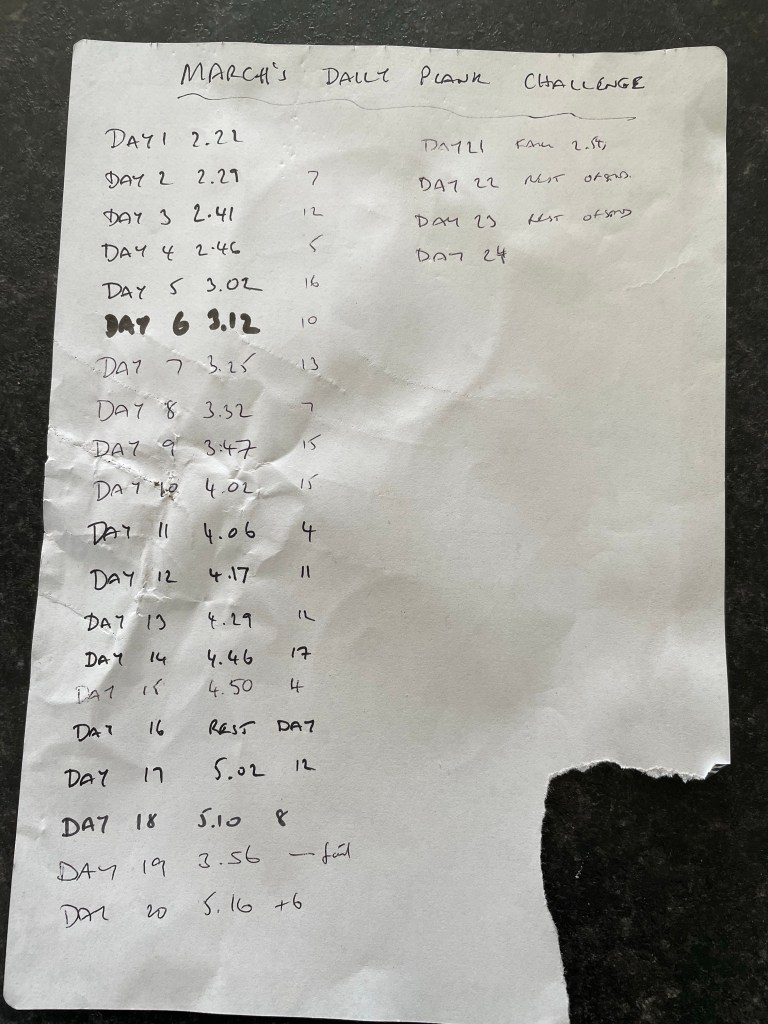 MARCH'S DAILY PLANK CHALLENGE
DAY 1 2.22
DAY 2 2.29 7
DAY 3 2.41 12
DAY 4 2.46 5
DAY 5 3.02 16
DAY 6 3.12 10
DAY 7 3.25 13
DAY 8 3.32 7
DAY 9 3.47 15
DAY 10 4.02 15
DAY 11 4.06 4
DAY 12 4.17 11
DAY 13 4.29 12
DAY 14 4.46 17
DAY 15 4.50 4
DAY 16 REST DAY
DAY 17 5.02 12
DAY 18 5.10 8
DAY 19 3.56 – fail
DAY 20 5.16 +6
DAY 21
DAY 22 REST
DAY 23 REST
DAY 24